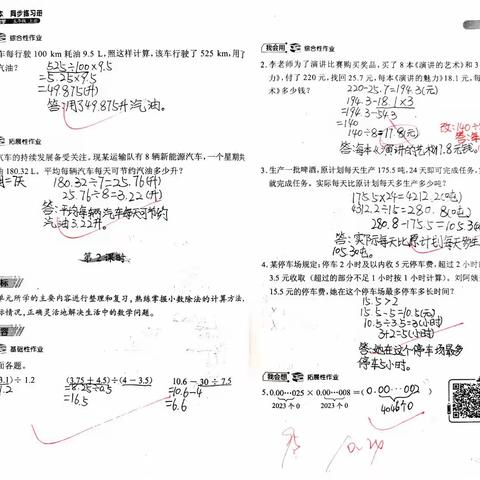 本 同步练习册
五年级 上册
综合性作业
车每行驶 100 km 耗油 9.5 L,照这样计算,该车行驶了 525 km,用了
汽油?
525÷100×9.5
=5.25×9.5
=49.875(升)
答:用了49.875升汽油。
拓展性作业
汽车的持续发展备受关注,现某运输队有 8 辆新能源汽车,一个星期共
油 180.32 L。平均每辆汽车每天可节约汽油多少升?
=7天
180.32÷7=25.76(升)
25.76÷8=3.22(升)
答:平均每辆汽车每天可节约
汽油3.22升。
第 2 课时
目标
单元所学的主要内容进行整理和复习,熟练掌握小数除法的计算方法,
际情况,正确灵活地解决生活中的数学问题。
内容
基础性作业
面各题。
3.1)÷ 1.2
(3.75 + 4.5)÷(4 − 3.5)
=8.25÷0.5
=16.5
10.6 − 30 ÷ 7.5
=10.6-4
=6.6
我会用 综合性作业
2. 李老师为了演讲比赛购买奖品,买了 8 本《演讲的艺术》和 3
力》,付了 220 元,找回 25.7 元,每本《演讲的魅力》18.1 元,每
术》多少钱?
220-25.7=194.3(元)
194.3-18.1×3
=194.3-54.3
=140
140÷8=17.8(元)
答:每本《演讲的艺术》17.8元钱。
3. 生产一批啤酒,原计划每天生产 175.5 吨,24 天即可完成任务,
就完成任务。实际每天比原计划每天多生产多少吨?
175.5×24=4212.2(吨)
4212.2÷15=280.8(吨)
280.8-175.5=105.30
答:实际每天比原计划每天多生
105.30吨。
4. 某停车场规定:停车 2 小时及以内收 5 元停车费,超过 2 小时
3.5 元收取(超过的部分不足 1 小时按 1 小时计算)。刘阿姨
15.5 元的停车费,她在这个停车场最多停车多长时间?
15.5×2
15.5-5=10.5(元)
10.5÷3.5=3(小时)
3+2=5(小时)
答:她在这个停车场最多
停车5小时。
我会想 拓展性作业
5. 0.00⋯025 × 0.00⋯008 =(0.00⋯002)
2023 个 0
2023 个 0
4046个0